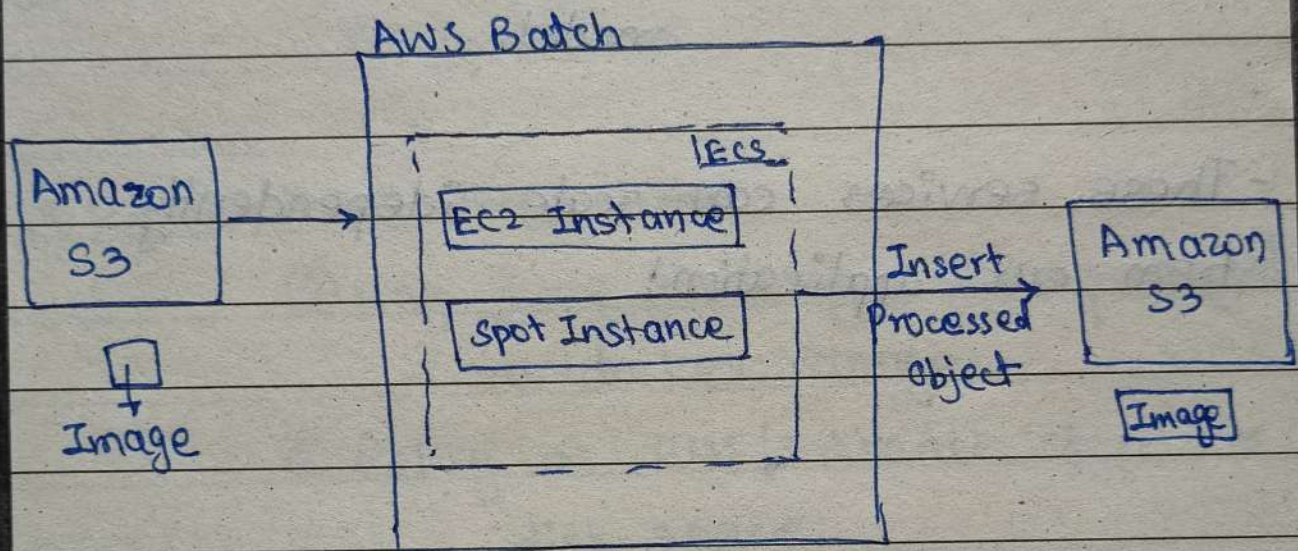 AWS Batch
ECS
Amazon
S3
Image
EC2 Instance
Spot Instance
Insert
Processed
object
Amazon
S3
Image